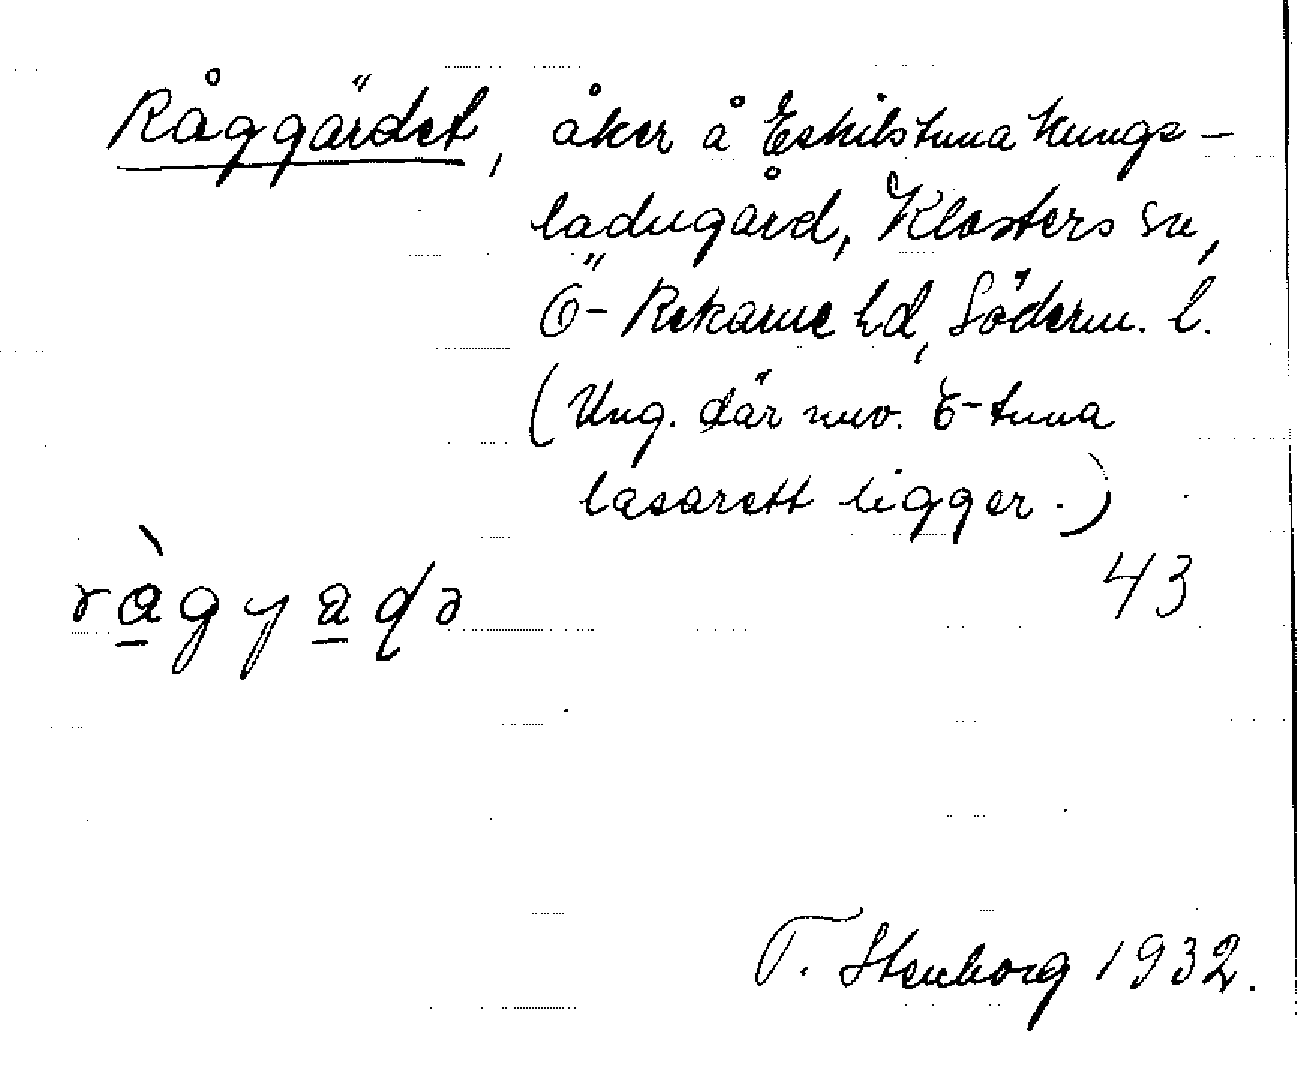 Råggärdet, åker å Eskilstuna Kungs-
ladugård, Klosters sn,
Ö-Rekarne hd, Söderm. l.
(Ung. där nuv. E-tuna
lasarett ligger.)
43
T. Stenborg 1932.